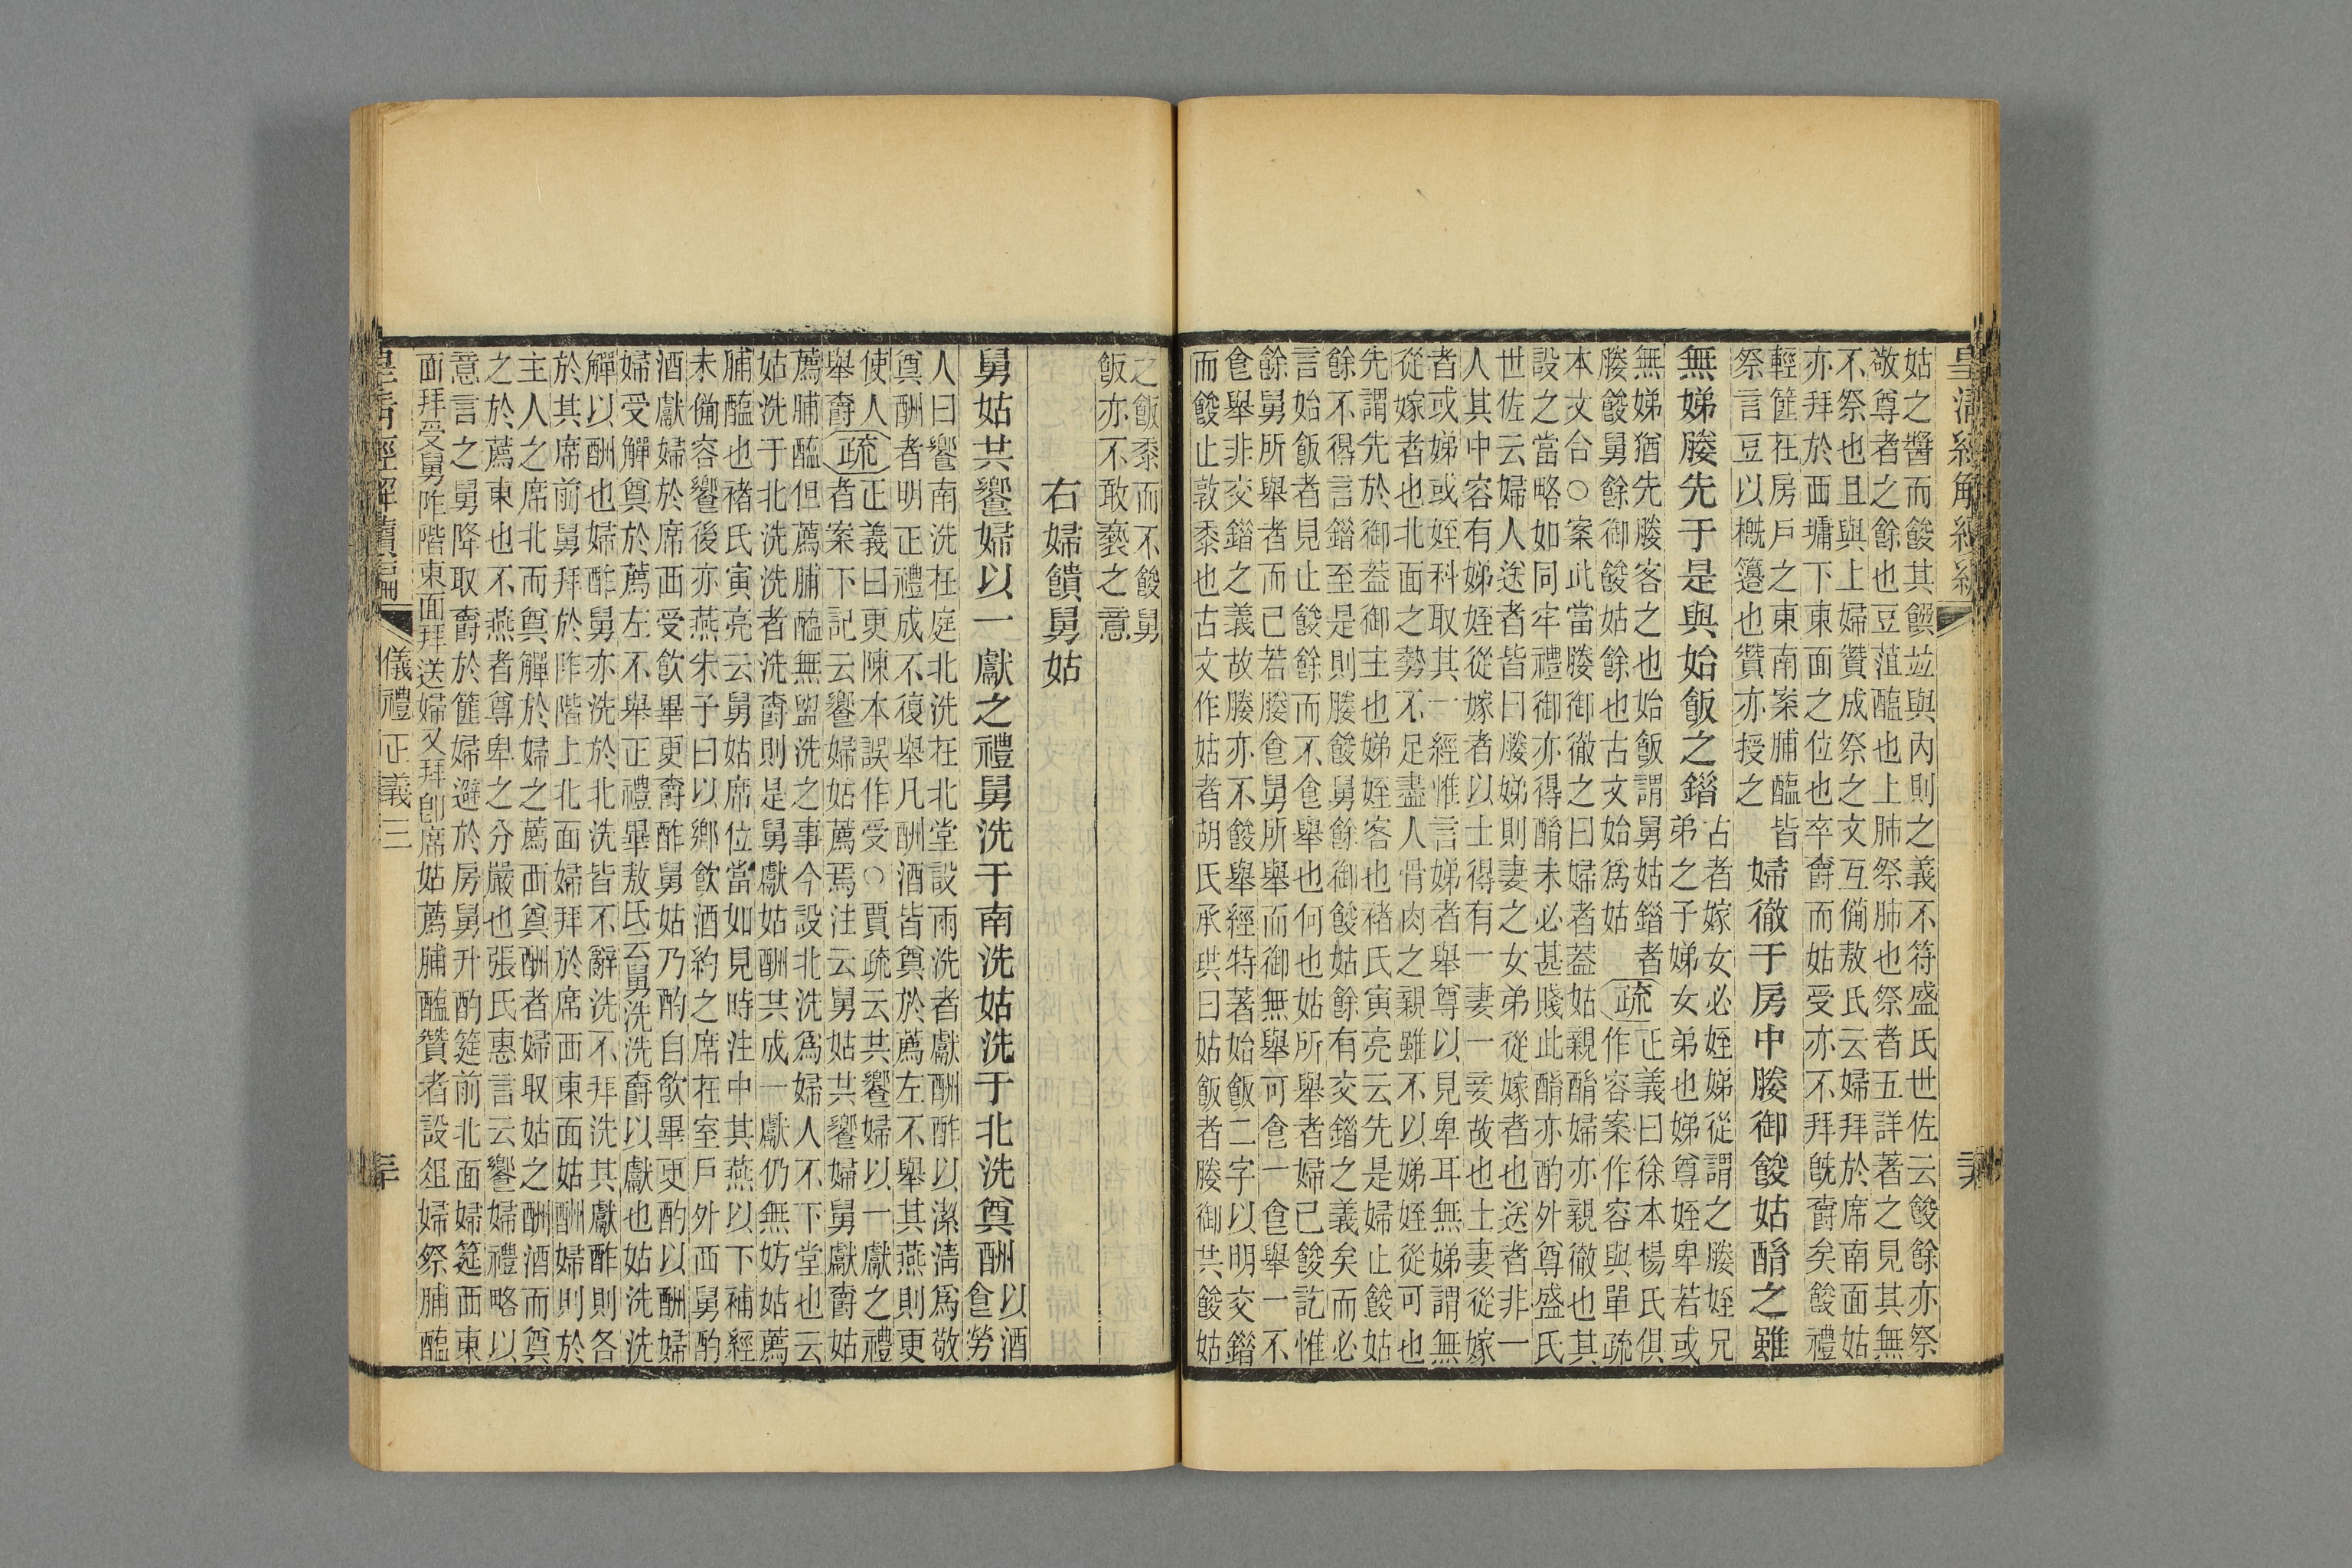 皇清經解續
姑之醬而餕其饌竝與內則之義不符盛氏世佐云餕餘亦祭
敬尊者之餘也豆菹醢也上肺祭肺也祭者五詳著之見其無
不祭也且與上婦贊成祭之文互備敖氏云婦拜於席南面姑
亦拜於西墉下東面之位也卒爵而姑受亦不拜旣爵矣餕禮
輕篚在房戶之東南案脯醢皆
祭言豆以概籩也贊亦授之
婦徹于房中媵御餕姑酳之雖
無娣媵先于是與始飯之錯
古者嫁女必姪娣從謂之媵姪兄
弟之子娣女弟也娣尊姪卑若或
無娣猶先媵客之也始飯謂舅姑錯者
媵餕舅餘御餕姑餘也古文始爲姑
疏
正義曰徐本楊氏俱
作容案作容與單疏
本文合○案此當媵御徹之曰婦者葢姑親酳婦亦親徹也其
設之當略如同牢禮御亦得酳未必甚賤此酳亦酌外尊盛氏
世佐云婦人送者皆曰媵娣則妻之女弟從嫁者也送者非一
人其中容有娣姪從嫁者以士得有一妻一妾故也士妻從嫁
者或娣或姪科取其一經惟言娣者舉尊以見卑耳無娣謂無
從嫁者也北面之勢不足盡人骨肉之親雖不以娣姪從可也
先謂先於御葢御主也娣姪客也褚氏寅亮云先是婦止餕姑
餘不得言錯至是則媵餕舅餘御餕姑餘有交錯之義矣而必
言始飯者見止餕餘而不食舉也何也姑所舉者婦已餕訖惟
餘舅所舉者而已若媵食舅所舉而御無舉可食一食舉一不
食舉非交錯之義故媵亦不餕舉經特著始飯二字以明交錯
而餕止敦黍也古文作姑者胡氏承珙曰姑飯者媵御共餕姑
之飯黍而不餕舅
飯亦不敢褻之意
右婦饋舅姑
舅姑共饗婦以一獻之禮舅洗于南洗姑洗于北洗奠酬
以酒
食勞
人曰饗南洗在庭北洗在北堂設兩洗者獻酬酢以潔淸爲敬
奠酬者明正禮成不復舉凡酬酒皆奠於薦左不舉其燕則更
使人
舉爵
疏
正義曰更陳本誤作受○賈疏云共饗婦以一獻之禮
者案下記云饗婦姑薦焉注云舅姑共饗婦舅獻爵姑
薦脯醢但薦脯醢無盥洗之事今設北洗爲婦人不下堂也云
姑洗于北洗洗者洗爵則是舅獻姑酬共成一獻仍無妨姑薦
脯醢也褚氏寅亮云舅姑席位當如見時注中其燕以下補經
未備容饗後亦燕朱子曰以鄉飲酒約之席在室戶外西舅酌
酒獻婦於席西受飲畢更爵酢舅姑乃酌自飲畢更酌以酬婦
婦受觶奠於薦左不舉正禮畢敖氏云舅洗洗爵以獻也姑洗洗
觶以酬也婦酢舅亦洗於北洗皆不辭洗不拜洗其獻酢則各
於其席前舅拜於阼階上北面婦拜於席西東面姑酬婦則於
主人之席北而奠觶於婦之薦西奠酬者婦取姑之酬酒而奠
之於薦東也不燕者尊卑之分嚴也張氏惠言云饗婦禮略以
意言之舅降取爵於篚婦避於房舅升酌筵前北面婦筵西東
面拜受舅阼階東面拜送婦又拜卽席姑薦脯醢贊者設俎婦祭脯醢
皇淸經解續編
儀禮正義三